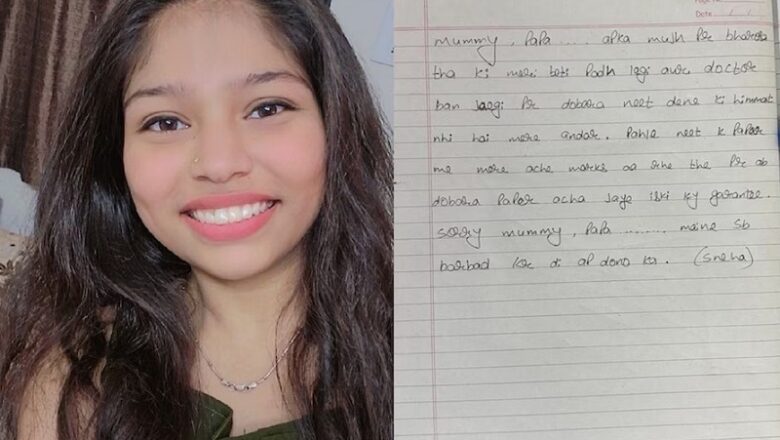 Page No.
Date / /
mummy, papa ..... apka mujh pr bharosa
tha ki meri beti padh legi aur doctor
ban jaegi pr dobara neet dene ki himmat
nhi hai mere andar. Pahle neet k paper
me mere ache marks aa rhe the pr ab
dobara paper acha jaye iski ky garantee.
sorry mummy, papa ......... maine sb
barbad kr di ap dono ka. (Sneha)